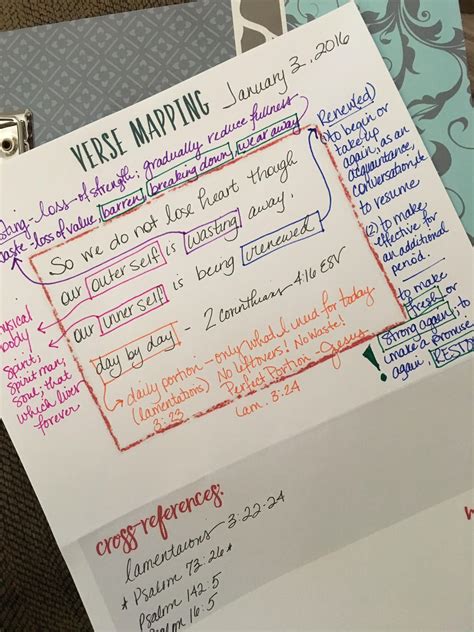 VERSE MAPPING
January 2, 2016
sting - loss of strength: gradually reduce fullness
aste - loss of value, barren, breaking down, wear away
So we do not lose heart though
our outer self is wasting away,
our inner self is being renewed
day by day - 2 corinthians 4:16 ESV
daily portion - only what I need for today
(lamentations) No leftovers! No Waste!
3:23 Perfect Portion - Jesus
Lam. 3:24
ysical
body
spirit,
spirit man,
soul, that
which lives
forever
Renewed)
to begin or
take up
again, as an
acquaintance,
conversation, etc
to resume
(2) to make
effective for
an additional
period.
to make
fresh or
strong again; to
make a promise
again,
RESTO
!
cross-references:
lamentations 3:22-24
* Psalm 73:26 *
Psalm 142:5
Psalm 16:5